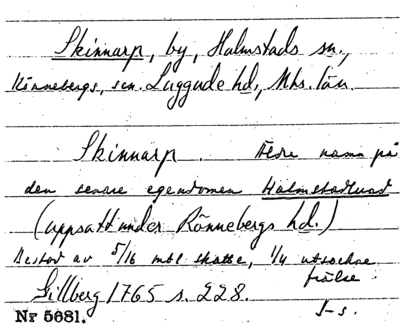 Skinnarp, by, Halmstads sn.,
Rönnebergs, sen. Luggude hd., Mhs. län.
Skinnarp. Äldre namn på
den senare egendomen Halmstadlund
(uppsatt under Rönnebergs hd.)
Bestod av 5/16 mtl skatte, 1/4 utsockne
frälse.
Gillberg 1765 s. 228.
J-s.
Nr 5681.